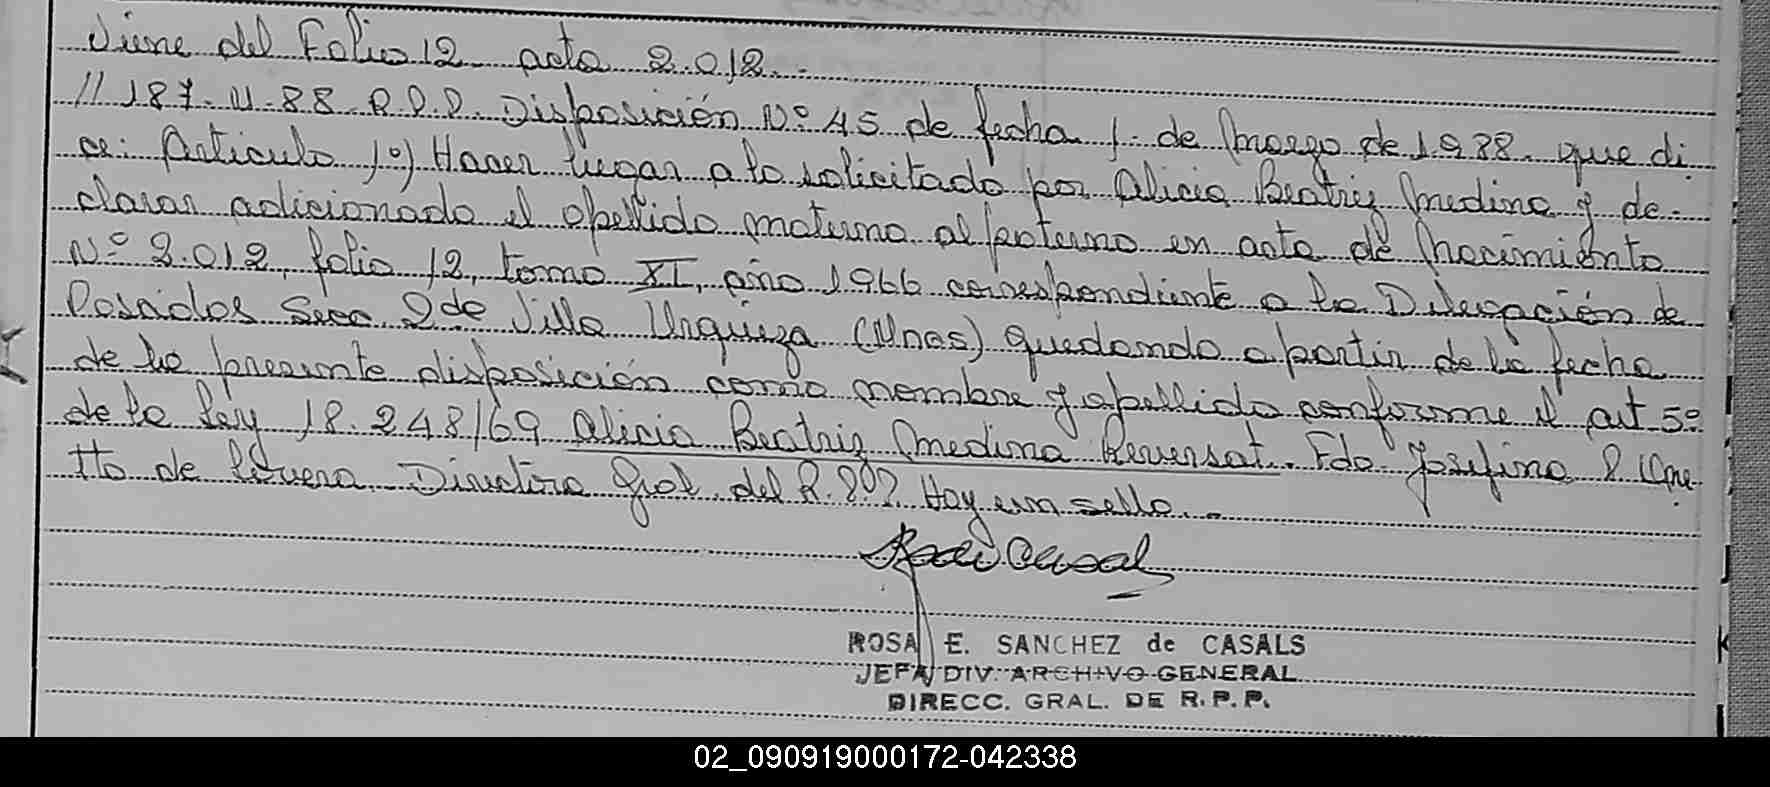 Viene del Folio 12 acta 2.012.-
// 187. U. 88. R.P.P. Disposición Nº 45 de fecha 1. de Marzo de 1.988. que di
ce: Articulo 1º) Hacer lugar a lo solicitado por Alicia Beatriz Medina y de-
clarar adicionado el apellido materno al paterno en acta de Nacimiento
Nº 2.012, folio 12, tomo XI, año 1966 correspondiente a la Delegación de
Posadas Secc 2da de Villa Urquiza (Mnes) quedando a partir de la fecha
de la presente disposición como nombre y apellido conforme el art 5º
de la Ley 18.248/69 Alicia Beatriz Medina Reversat. Fdo. Josefina
de Directora Gral. del R.P.P. Hay un sello.-
ROSA E. SANCHEZ de CASALS
JEFA DIV. ARCHIVO GENERAL
DIRECC. GRAL. DE R. P. P.
02_090919000172-042338